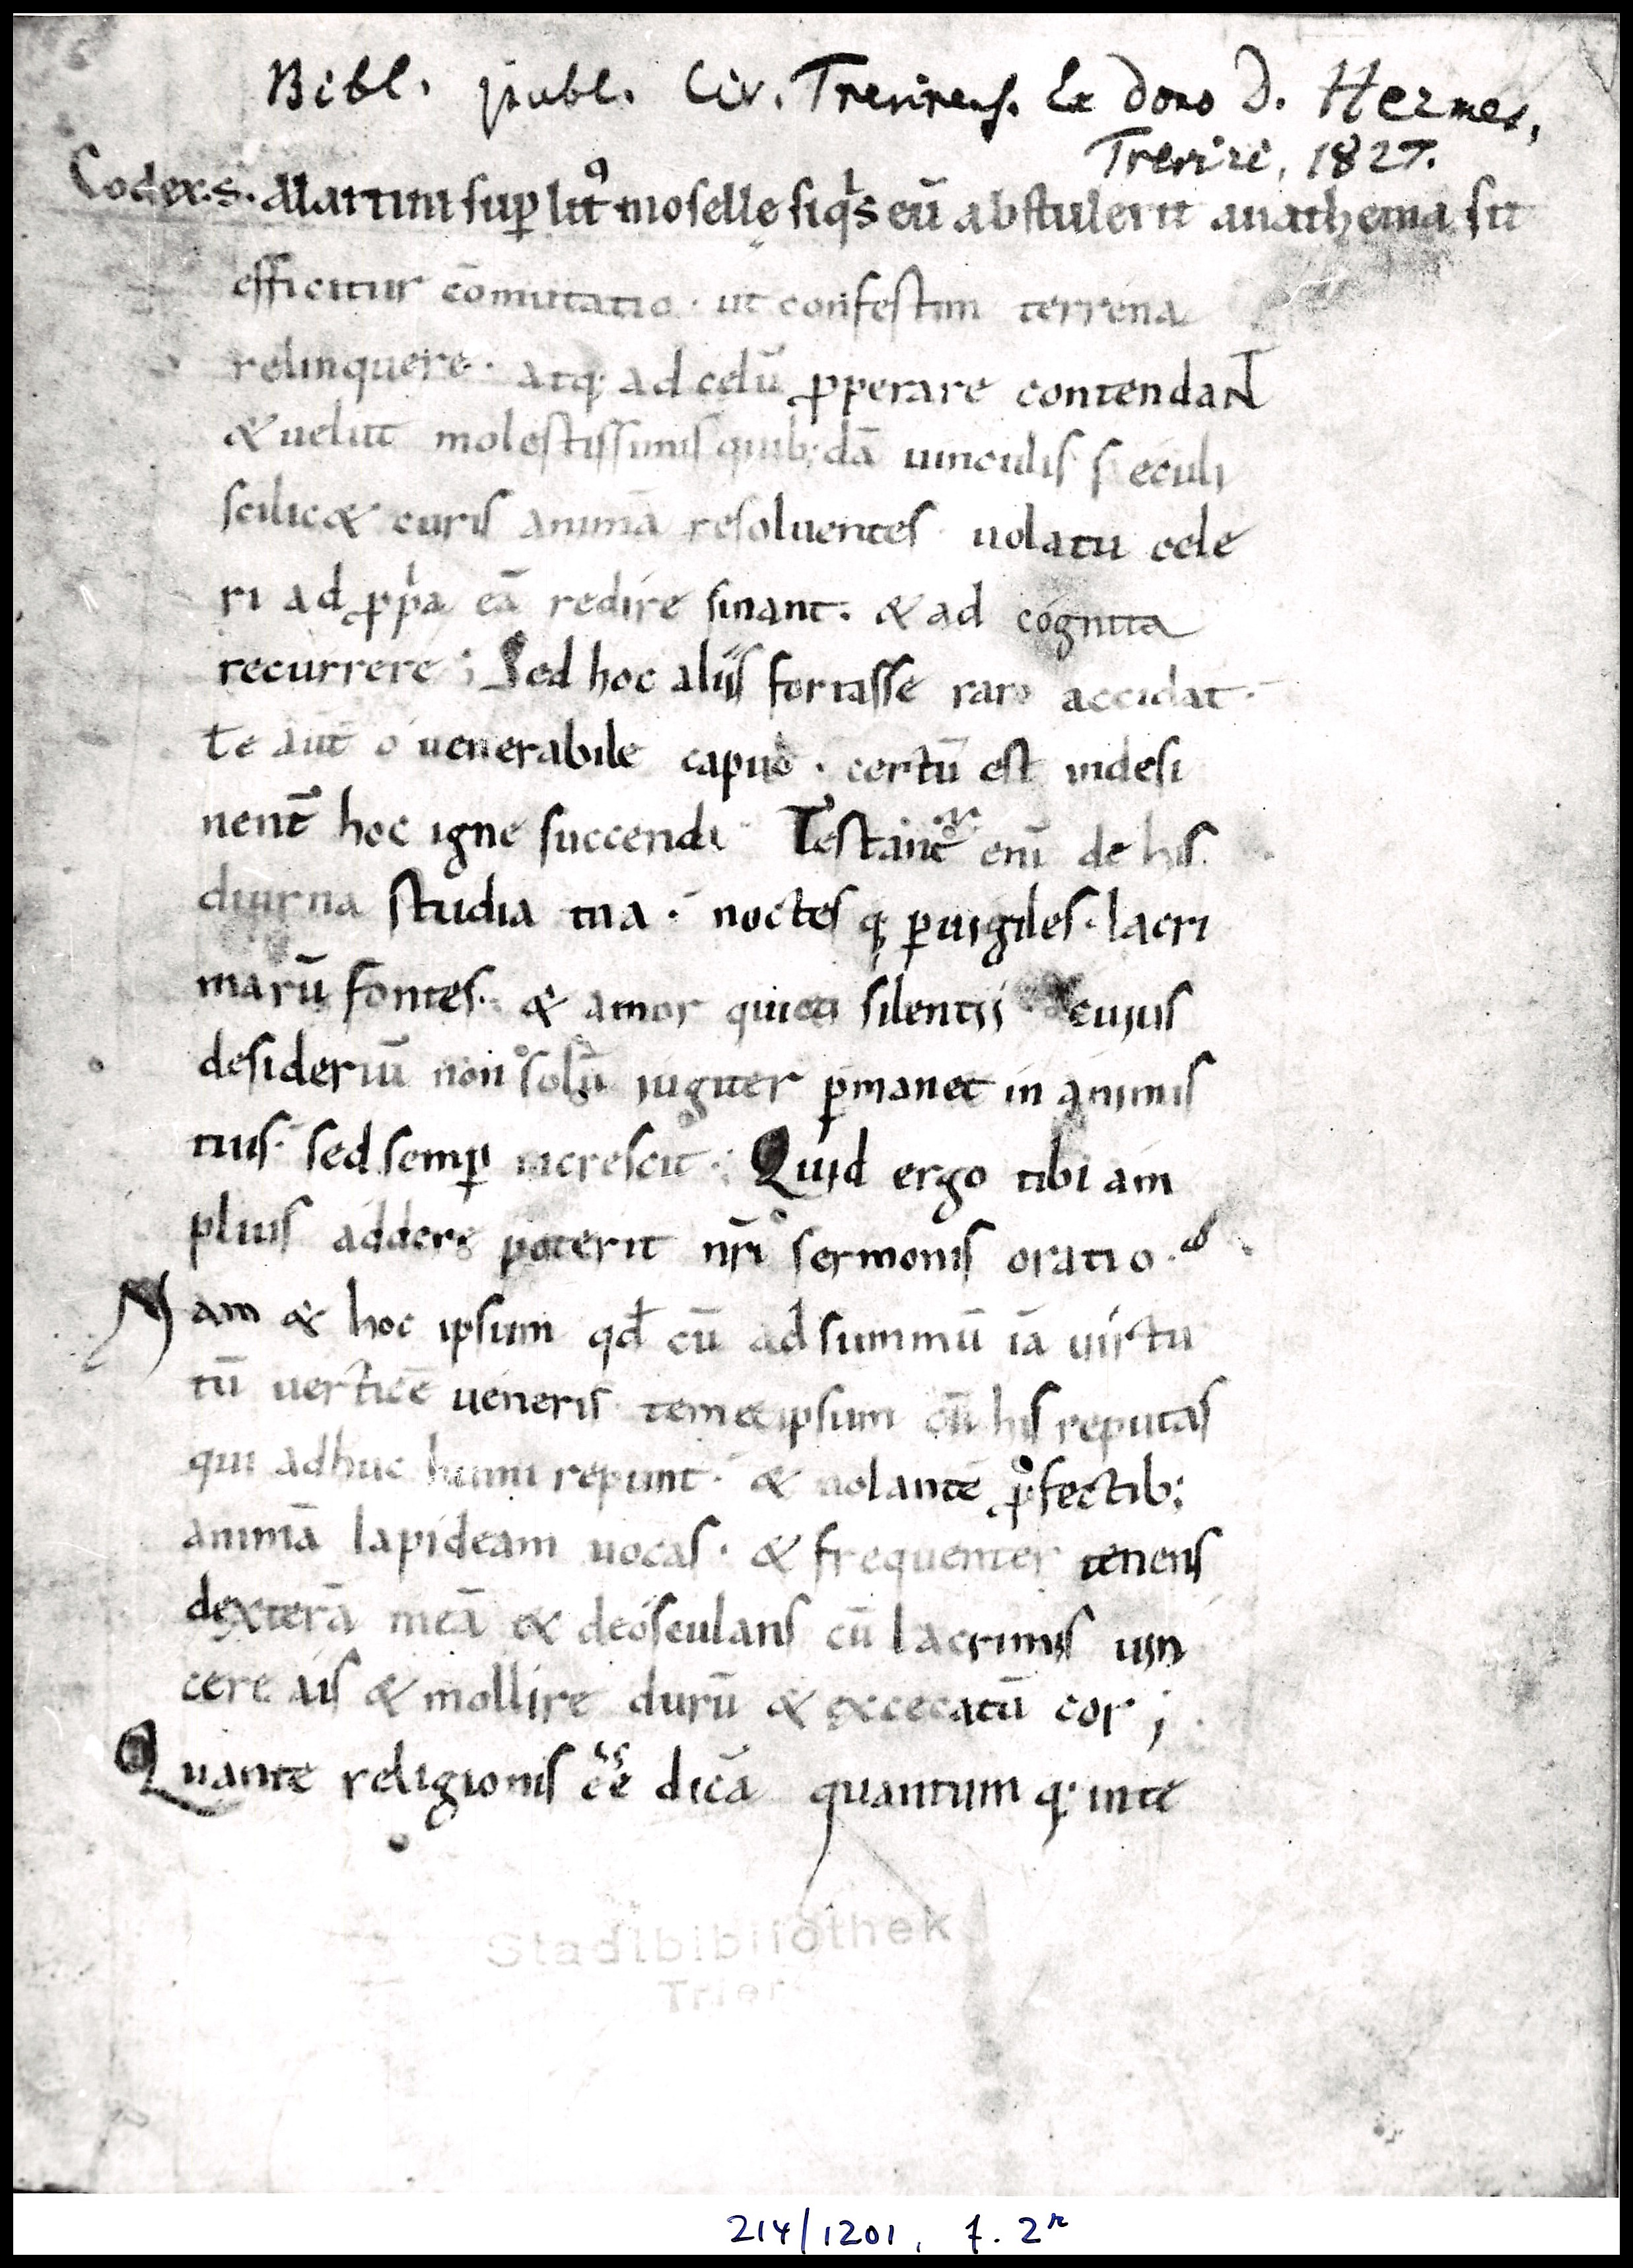 Bibl. publ. Civ. Trevirens. Ex dono D. Hermes,
Treviri, 1827.
Codex. s. Martini suꝑ litꝰ moselle siqͥs eū abstulerit anathema sit
efficitur cōmutatio · ut confestim terrena
relinquere · atq; ad celū ꝓperare contendaNT
& uelut molestissimis quib;dā uinculis sęculi
scilic& curis animā resoluentes uolatu cele
ri ad ꝓpͥa eā redire sinant. & ad cognita
recurrere ; Sed hoc aliis fortasse raro accidat ·
te aut̄ o uenerabile capud · certū est indesi
nent̄ hoc igne succendi Testant᷑ enī de his
diurna studia tua · noctes q; ꝑuigiles · lacri
marū fontes · & amor quieti silentii cuius
desideriū non solū iugiter ꝑmanet in animis
tuis · sed semꝑ increscit ; Quid ergo tibi am
plius addere poterit nr̄i sermonis oratio ·
Nam & hoc ipsum qđ cū ad summū iā uirtu
tū uerticē ueneris temetipsum cū his reputas
qui adhuc humi repunt · & nolantē ꝓfectib;
animā lapideam uocas · & frequenter tenens
dexterā meā & deosculans cū lacrimis uin
cere ais & mollire durū & excecatū cor ;
Quante religionis eē dicā quantum q; inte
Stadtbibliothek
Trier
214/1201, f. 2r